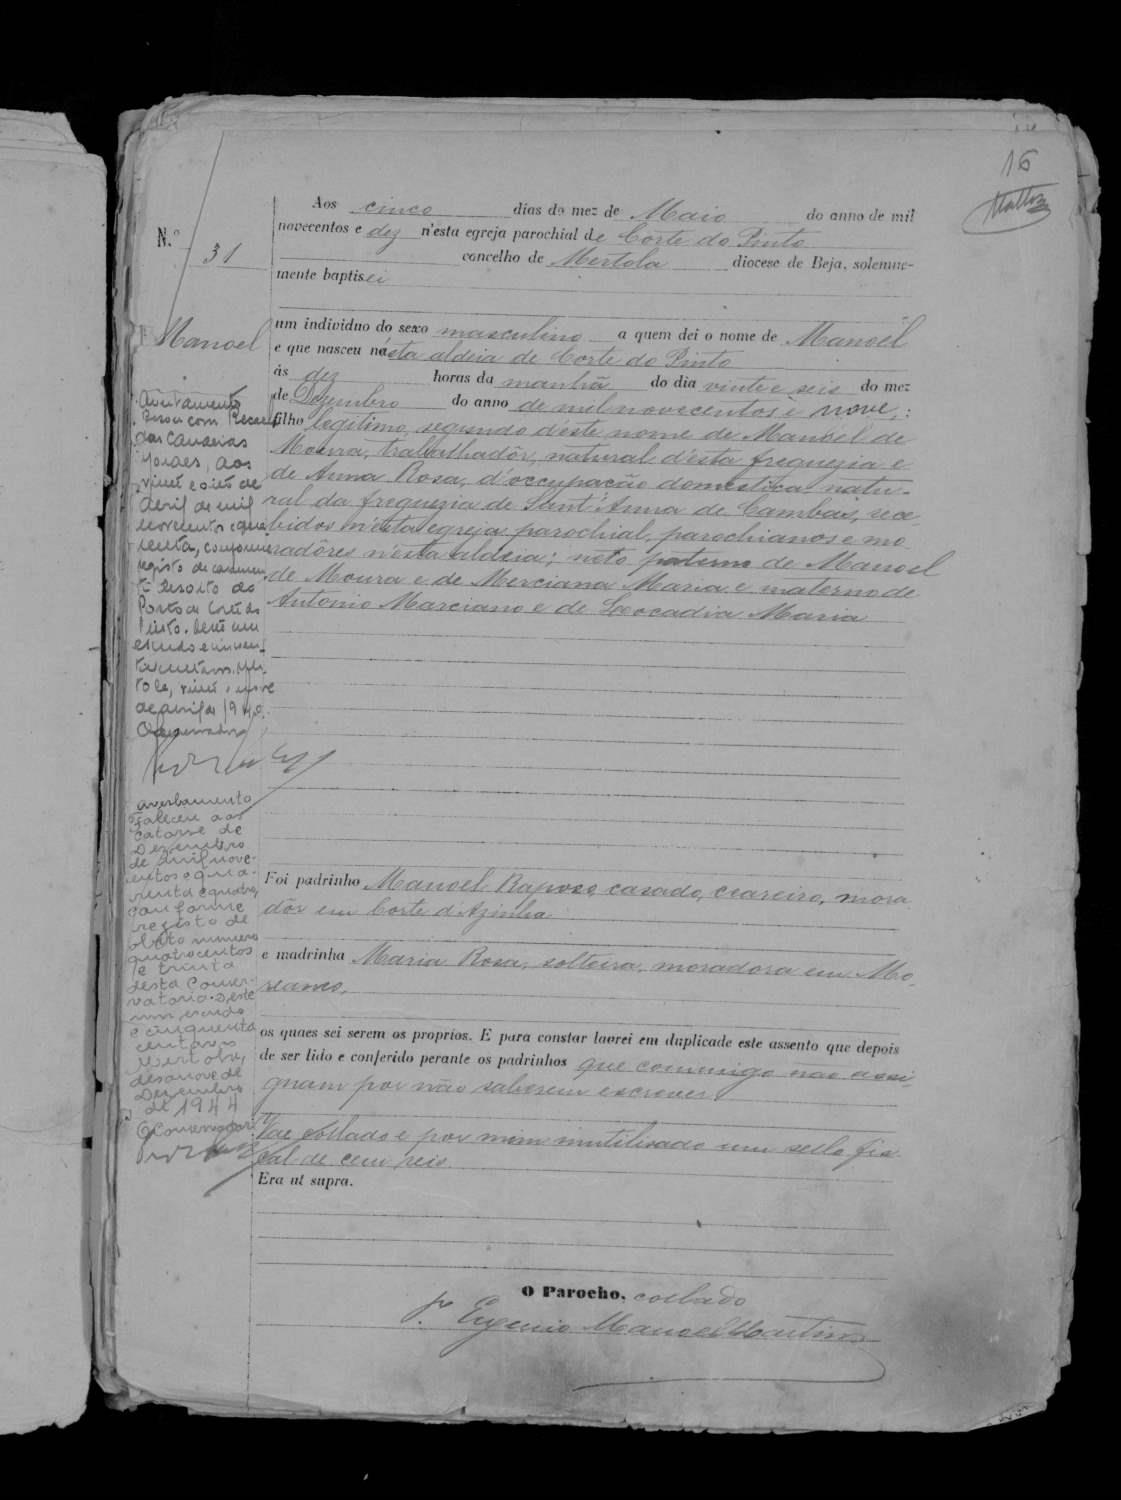 16
Mattos
N.º 31
Manoel
Aos cinco dias do mez de Maio do anno de mil
novecentos e dez n'esta egreja parochial de Corte do Pinto
concelho de Mertola diocese de Beja, solemne-
mente baptisei
um individuo do sexo masculino a quem dei o nome de Manoel
e que nasceu n'esta aldeia de Corte do Pinto
ás dez horas da manhã do dia vinte e seis do mez
de Dezembro do anno de mil novecentos e nove,:
filho legitimo, segundo d'este nome de Manoel de
Moura, trabalhadôr, natural d'esta freguezia e
de Anna Rosa, d'occupação domestica, natu-
ral da freguezia de Sant'Anna de Cambas, rece-
bidos n'esta egreja parochial, parochianos e mo
radôres n'esta aldeia; neto paterno de Manoel
de Moura e de Merciana Maria e materno de
Antonio Marciano e de Leocadia Maria
Foi padrinho Manoel Raposo, casado, ceareiro, mora
dôr em Corte d'Azinha
e madrinha Maria Rosa, solteira, moradora em Mo-
reanes,
os quaes sei serem os proprios. E para constar lavrei em duplicado este assento que depois
de ser lido e conferido perante os padrinhos que commigo não assi
gnam por não saberem escrever.
Vae collado e por mim inutilisado um sello fis
cal de cem reis.
Era ut supra.
O Parocho, collado
P. Eugenio Manoel Martins
Averbamento
Casou com
das Candeias
aos
vinte e oito de
Abril de mil
novecentos e qua
renta, conforme
registo de casamen
to desoito do
Posto de Corte do
Pinto. Deve um
escudo e cincoen-
ta centavos. Mer-
tola, vinte e nove
de abril de 1940.
O Conservador
averbamento
Faleceu aos
catorze de
Dezembro
de mil nove-
centos e qua-
renta e quatro,
conforme
registo de
obito numero
quatrocentos
e trinta
desta Conser-
vatoria. Deve
um escudo
e cinquenta
centavos
Mertola,
desanove de
Dezembro
de 1944
O Conservador